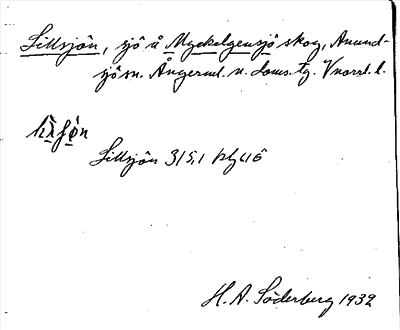 Lillsjön, sjö å Myckelgensjö skog, Anund-
sjö sn. Ångerml. n. doms. tg. Vnorrl. l.
Lillsjön 315,1
H. A. Söderberg 1932